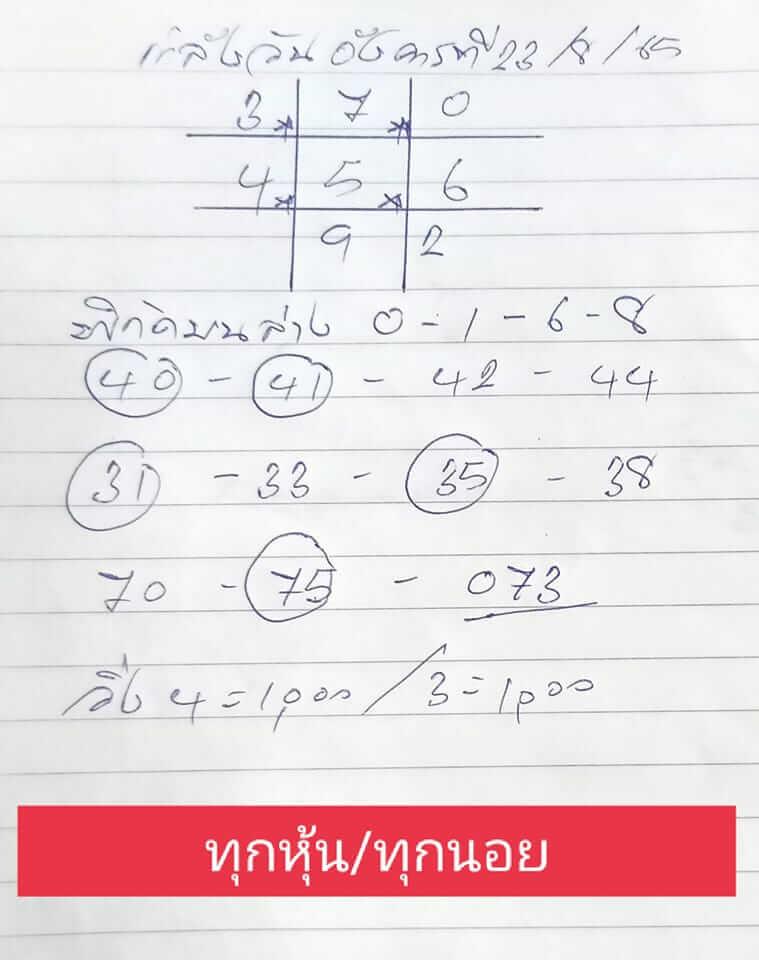 กำลังวัน อังคารที่ 23/8/65
3 7 0
4 5 6
9 2
พิกัดบนล่าง 0-1-6-8
40 - 41 - 42 - 44
31 - 33 - 35 - 38
70 - 75 - 073
วิ่ง 4 = 1,000 / 3 = 1,000
ทุกหุ้น/ทุกนอย